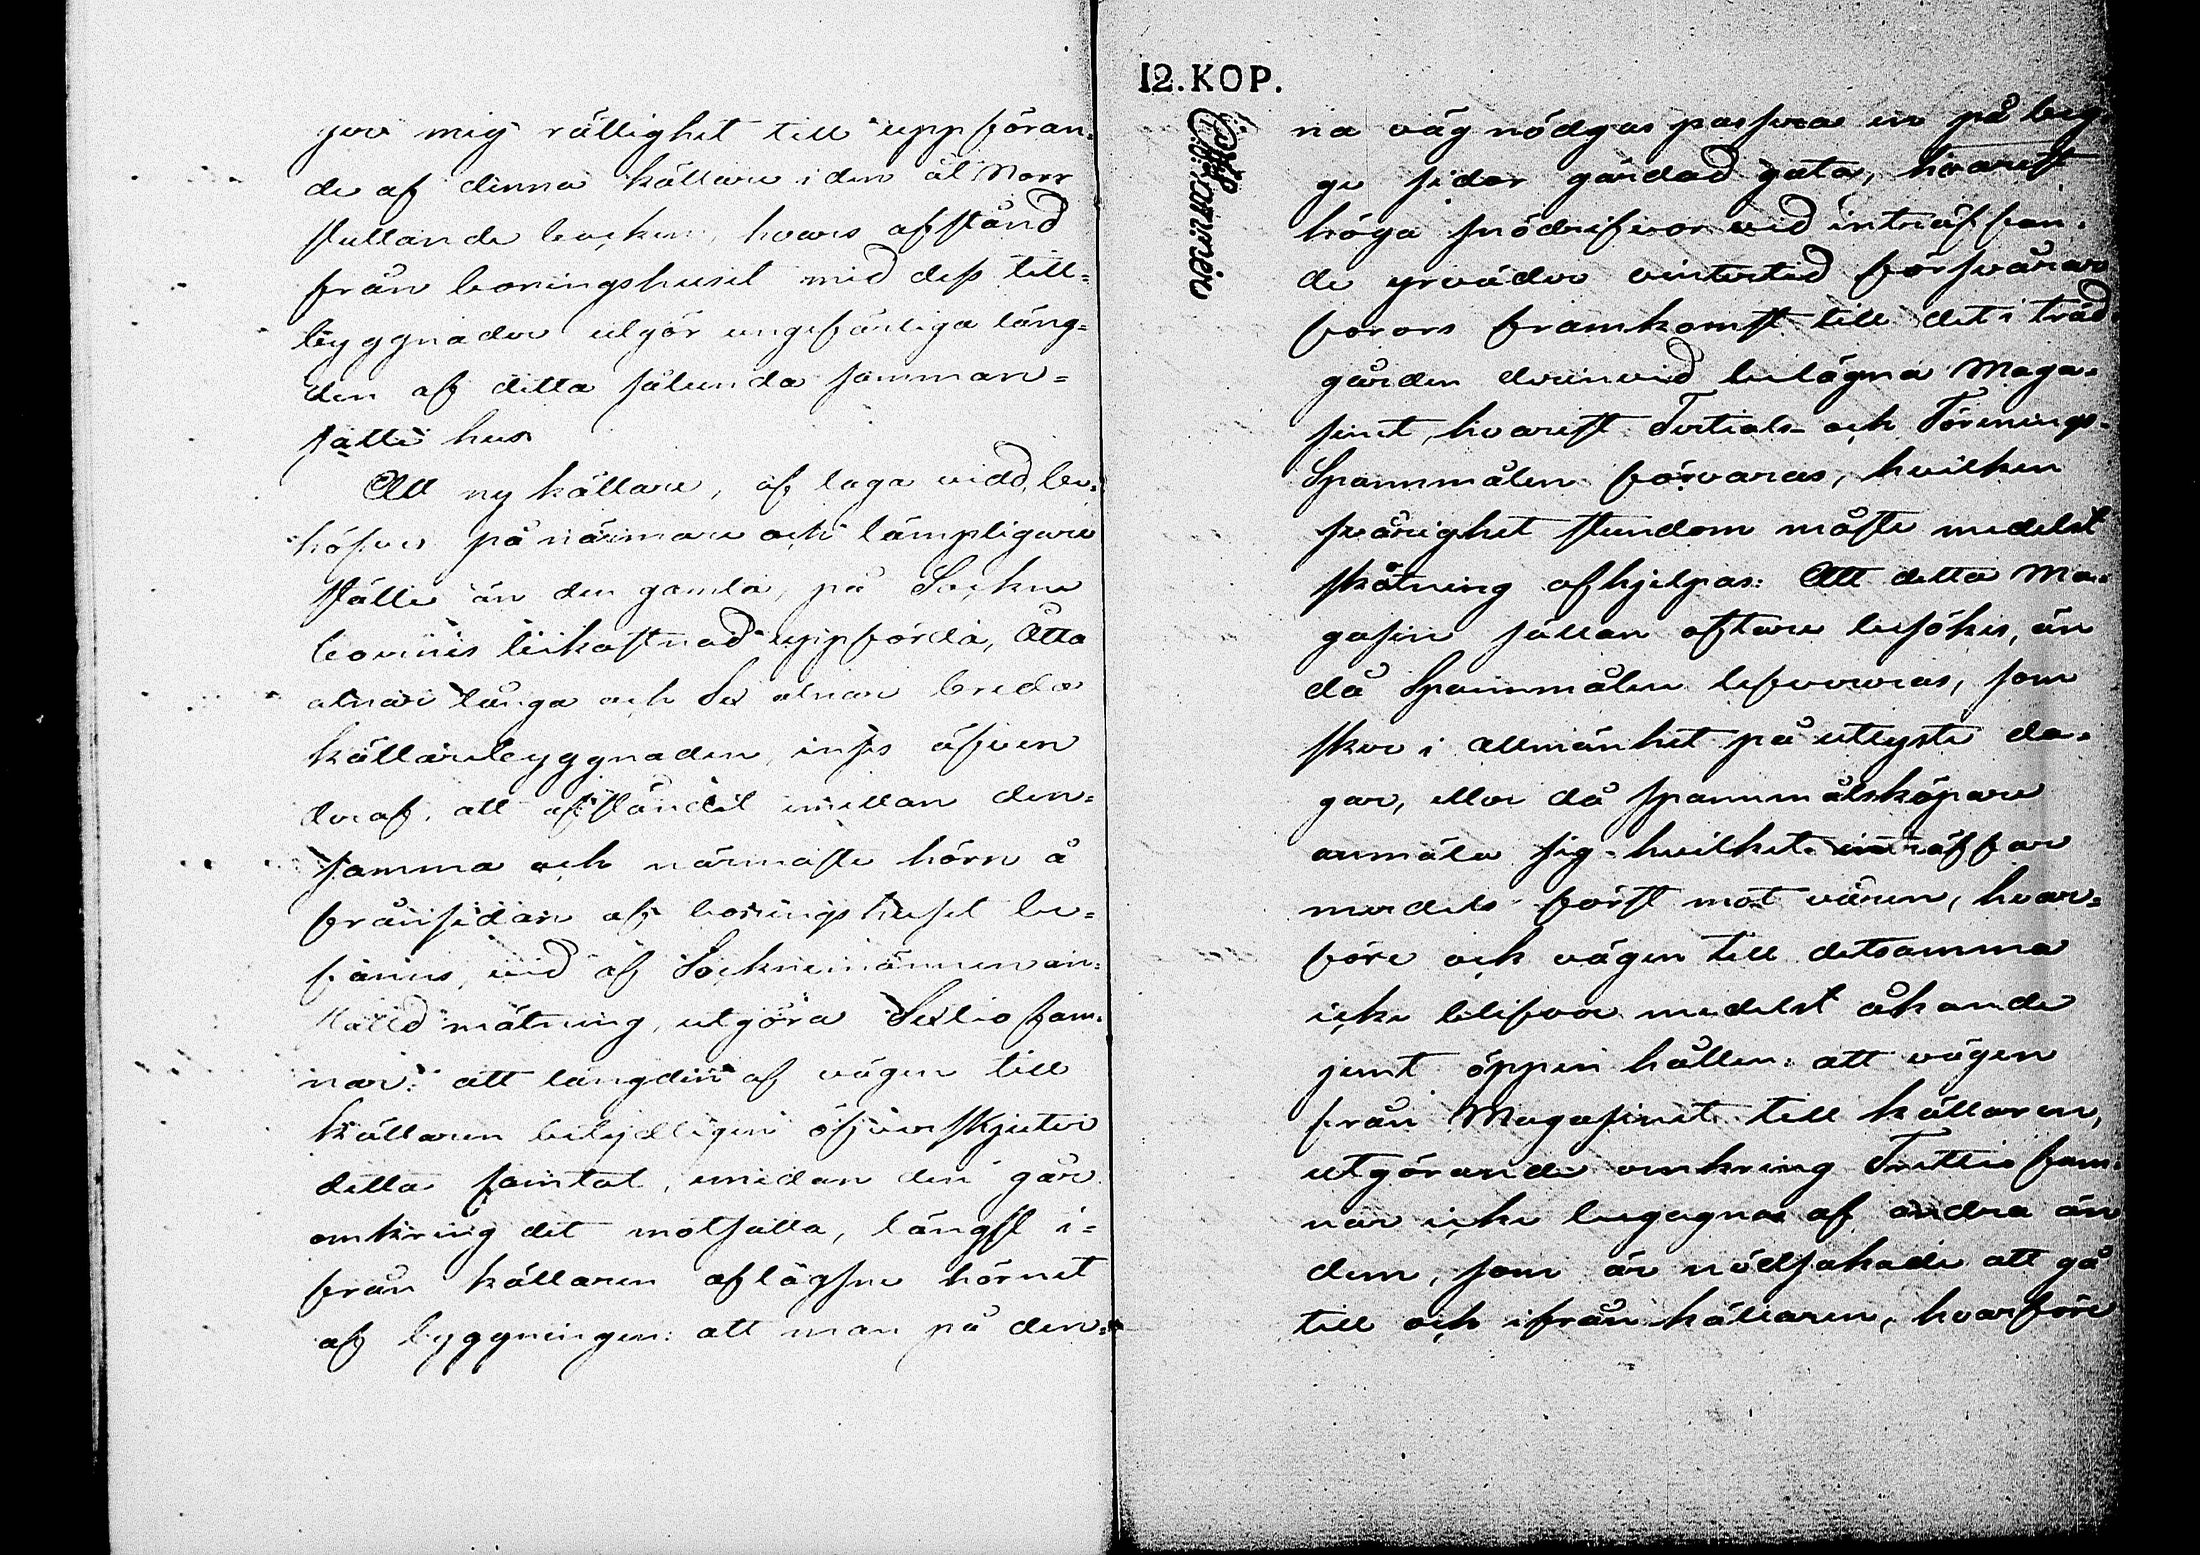 mig rättighet till uppföran-
de af denna källare i den åt Norr
stuttande backen, hvars afstånd
från boningshuset med dess till-
byggnader utgör ungefärliga läng-
den af detta sålunda samman-
satte hus
Att ny källare, af laga vidd, be-
höfves på närmare och lämpligare
ställe än den gamla, på Sockne
boernes bekostnad uppförda, Åtta
alnar långa och Sex alnar breda
källarebyggnaden, inses äfven
deraf, att afståndet emellan den-
samma och närmaste hörn å
frånsidan af boningshuset be-
finnes, vid af Socknemännen an-
ställd mätning, utgöra Sextio fam-
nar: att längden af vägen till
källaren betydligen öfverskjuter
detta famtal, emedan den går
omkring det motsatta, längst i-
från källaren aflägsne hörnet
af byggningen: att man på den-
12. KOP.
na väg nödgas passera en på beg-
ge sidor gärdad gata, hvarest
höga snödrifvor vid inträffan-
de yrväder vintertid försvårar
forors framkomst till det i träd-
gården derinvid belägna Maga-
sinet, hvarest Tertials- och Förenings-
Spannmålen förvaras, hvilken
svårighet stundom måste medelst
skåtning afhjelpas: Att detta Ma-
gasin sällan oftare besökes, än
då Spannmålen lefvereras, som
sker i allmänhet på utlyste da-
gar, eller då spannmålsköpare
anmäla sig hvilket inträffar
merdels först mot våren, hvar-
före och vägen till detsamma
icke blifver medelst åkande
jemt öppen hållen: att vägen
från Magasinet till källaren,
utgörande omkring Trettio fam-
nar icke begagnas af andra än
dem, som är nödsakade att gå
till och ifrån källaren, hvarföre